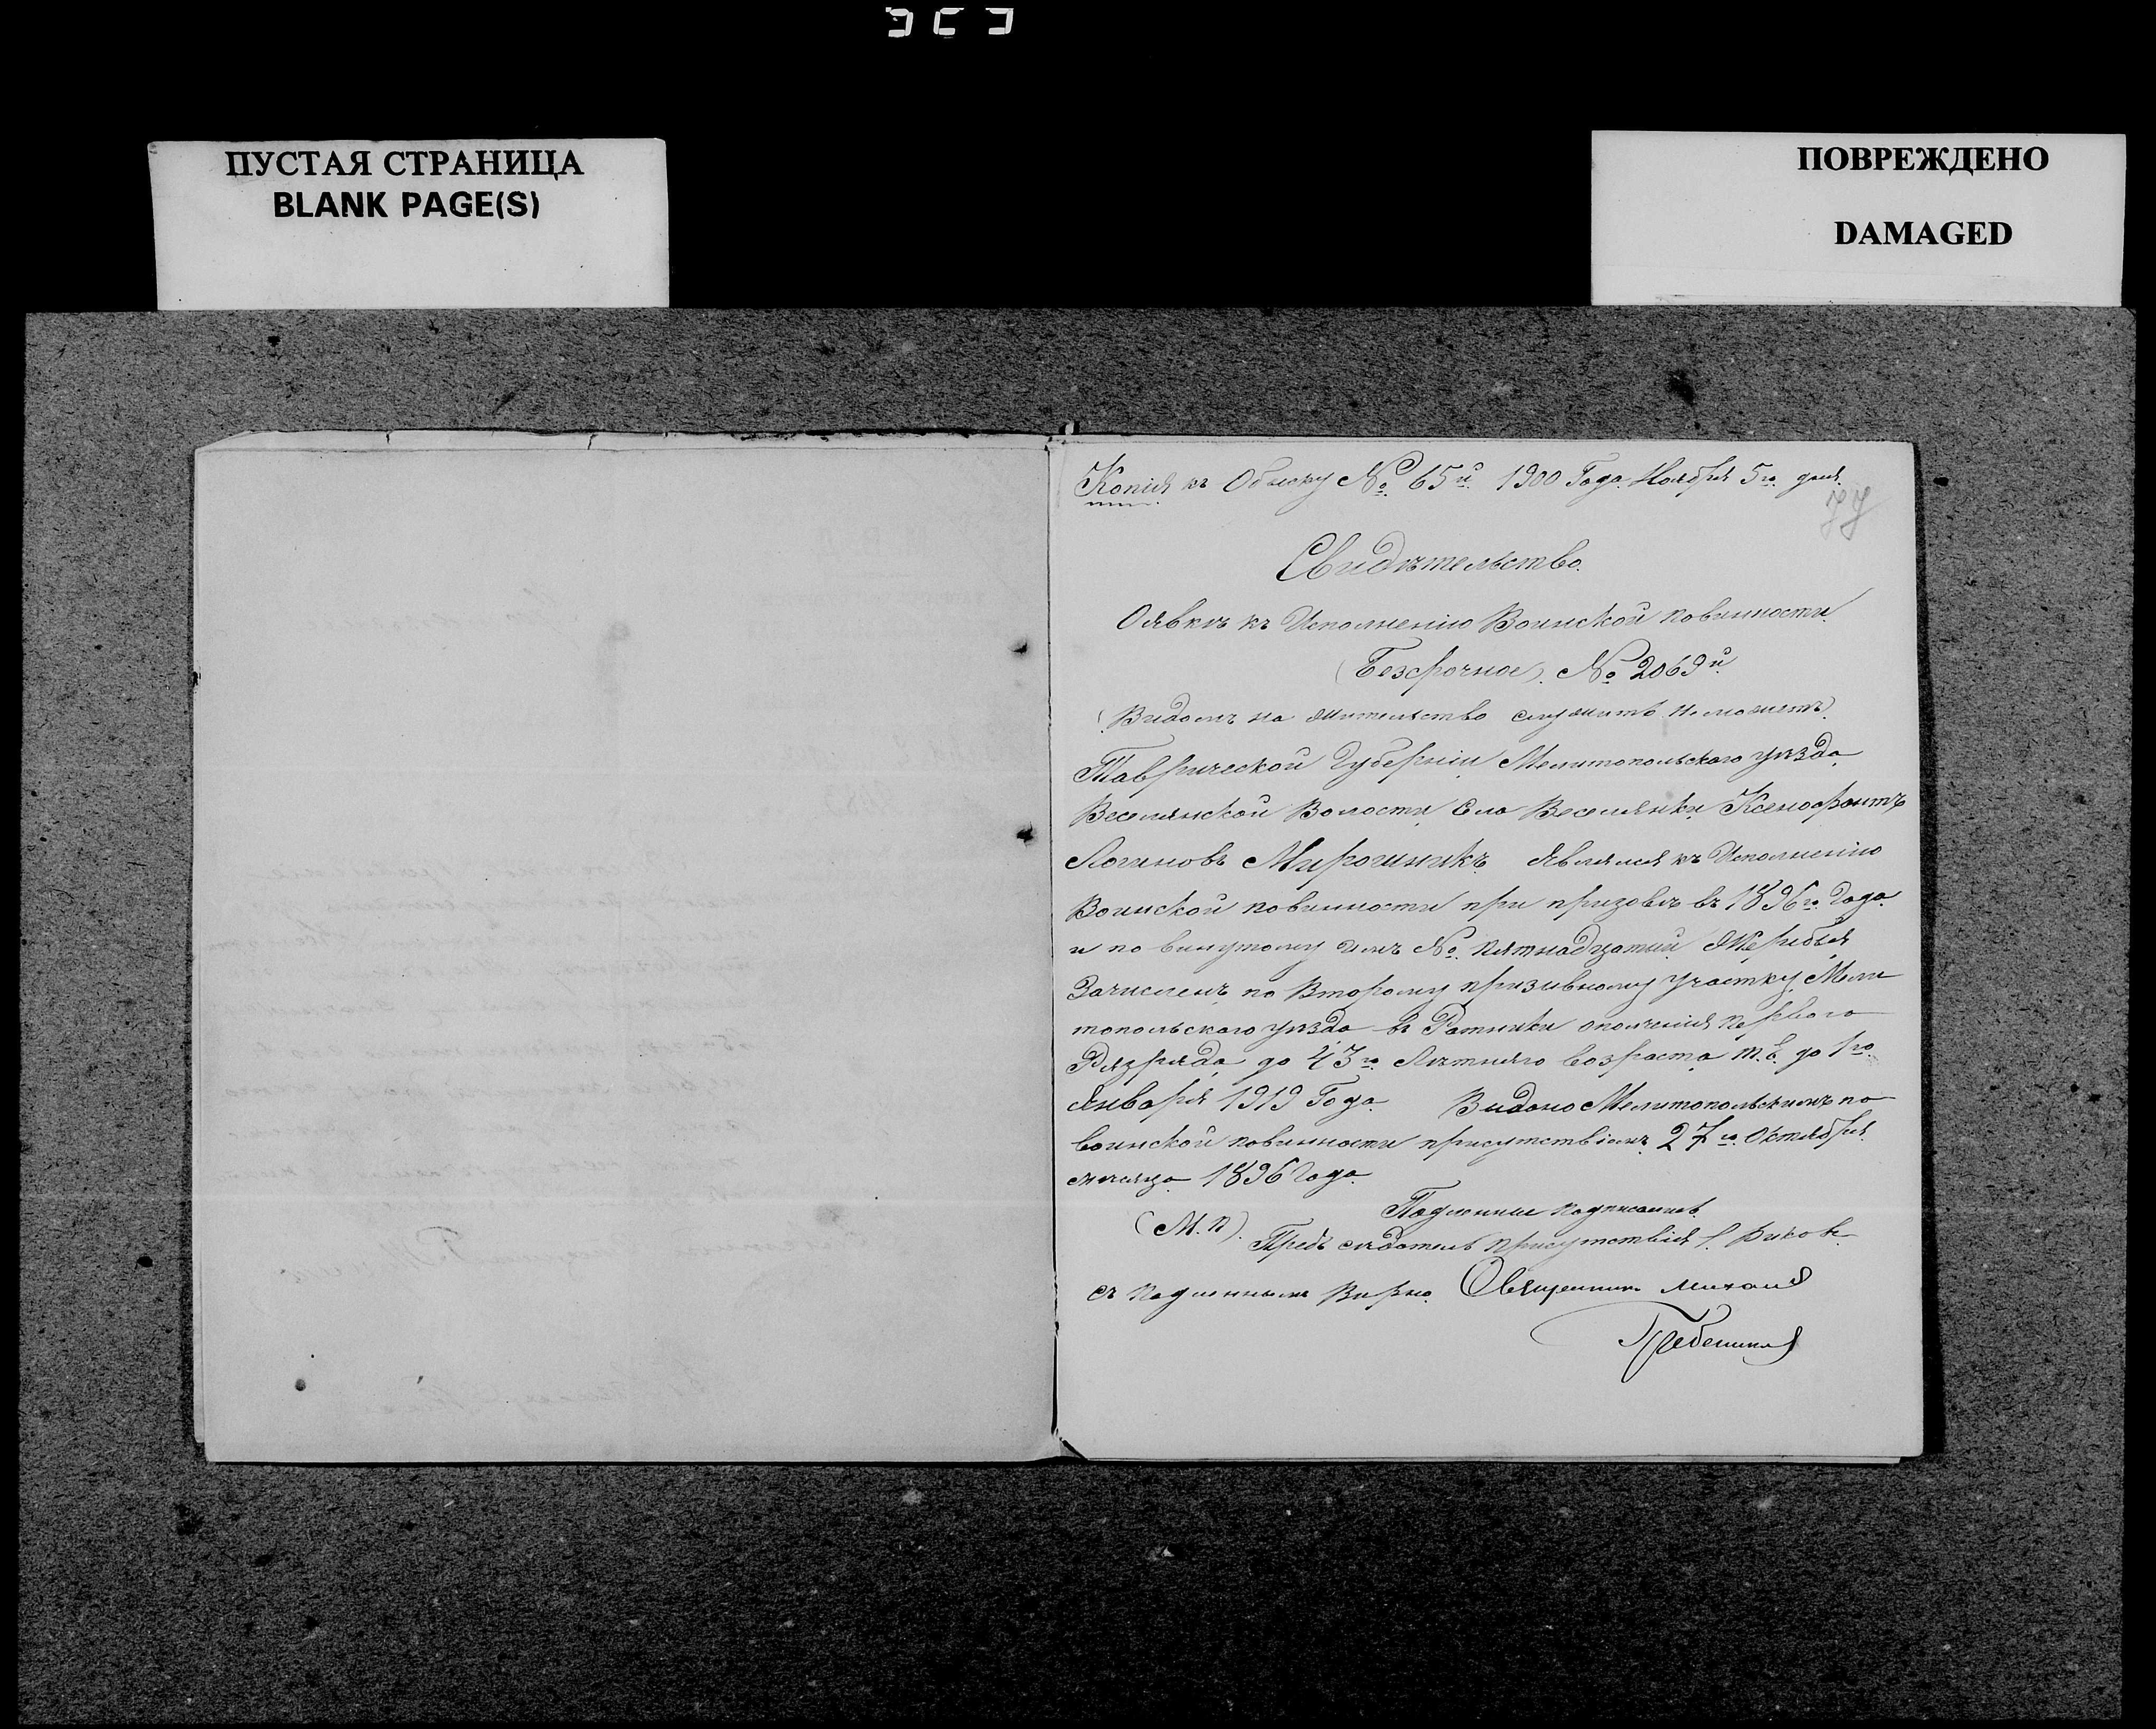 ПУСТАЯ СТРАНИЦА
BLANK PAGE(S)
ПОВРЕЖДЕНО
DAMAGED
Копія къ Обыску № 65й 1900 Года Ноября 5го дня.
77
Свидѣтельство.
О явкѣ къ Исполненію Воинской повинности
(Безсрочное). № 2069й
(Видомъ на жительство служить не можетъ)
Таврической Губерніи Мелитопольскаго уѣзда
Веселянской Волости Села Веселянки Ксенофонтъ
Логиновъ Мирошникъ Являлся къ Исполненію
Воинской повинности при призывѣ въ 1896го Года
и по вынутому имъ № пятнадцатый Жеребья
Зачисленъ по Второму призывному участку Мели
топольскаго уѣзда въ Ратники ополченія Перваго
Разряда до 43го Лѣтняго возраста т.е. до 1го
Января 1919 Года. Выдано Мелитопольскимъ по
воинской повинности присутствіемъ 27го Октября
мѣсяца 1896 Года
Подлинные подписалъ
(М.П.) Предсѣдатель Присутствія
съ подлиннымъ Вѣрно. Священникъ Михаил